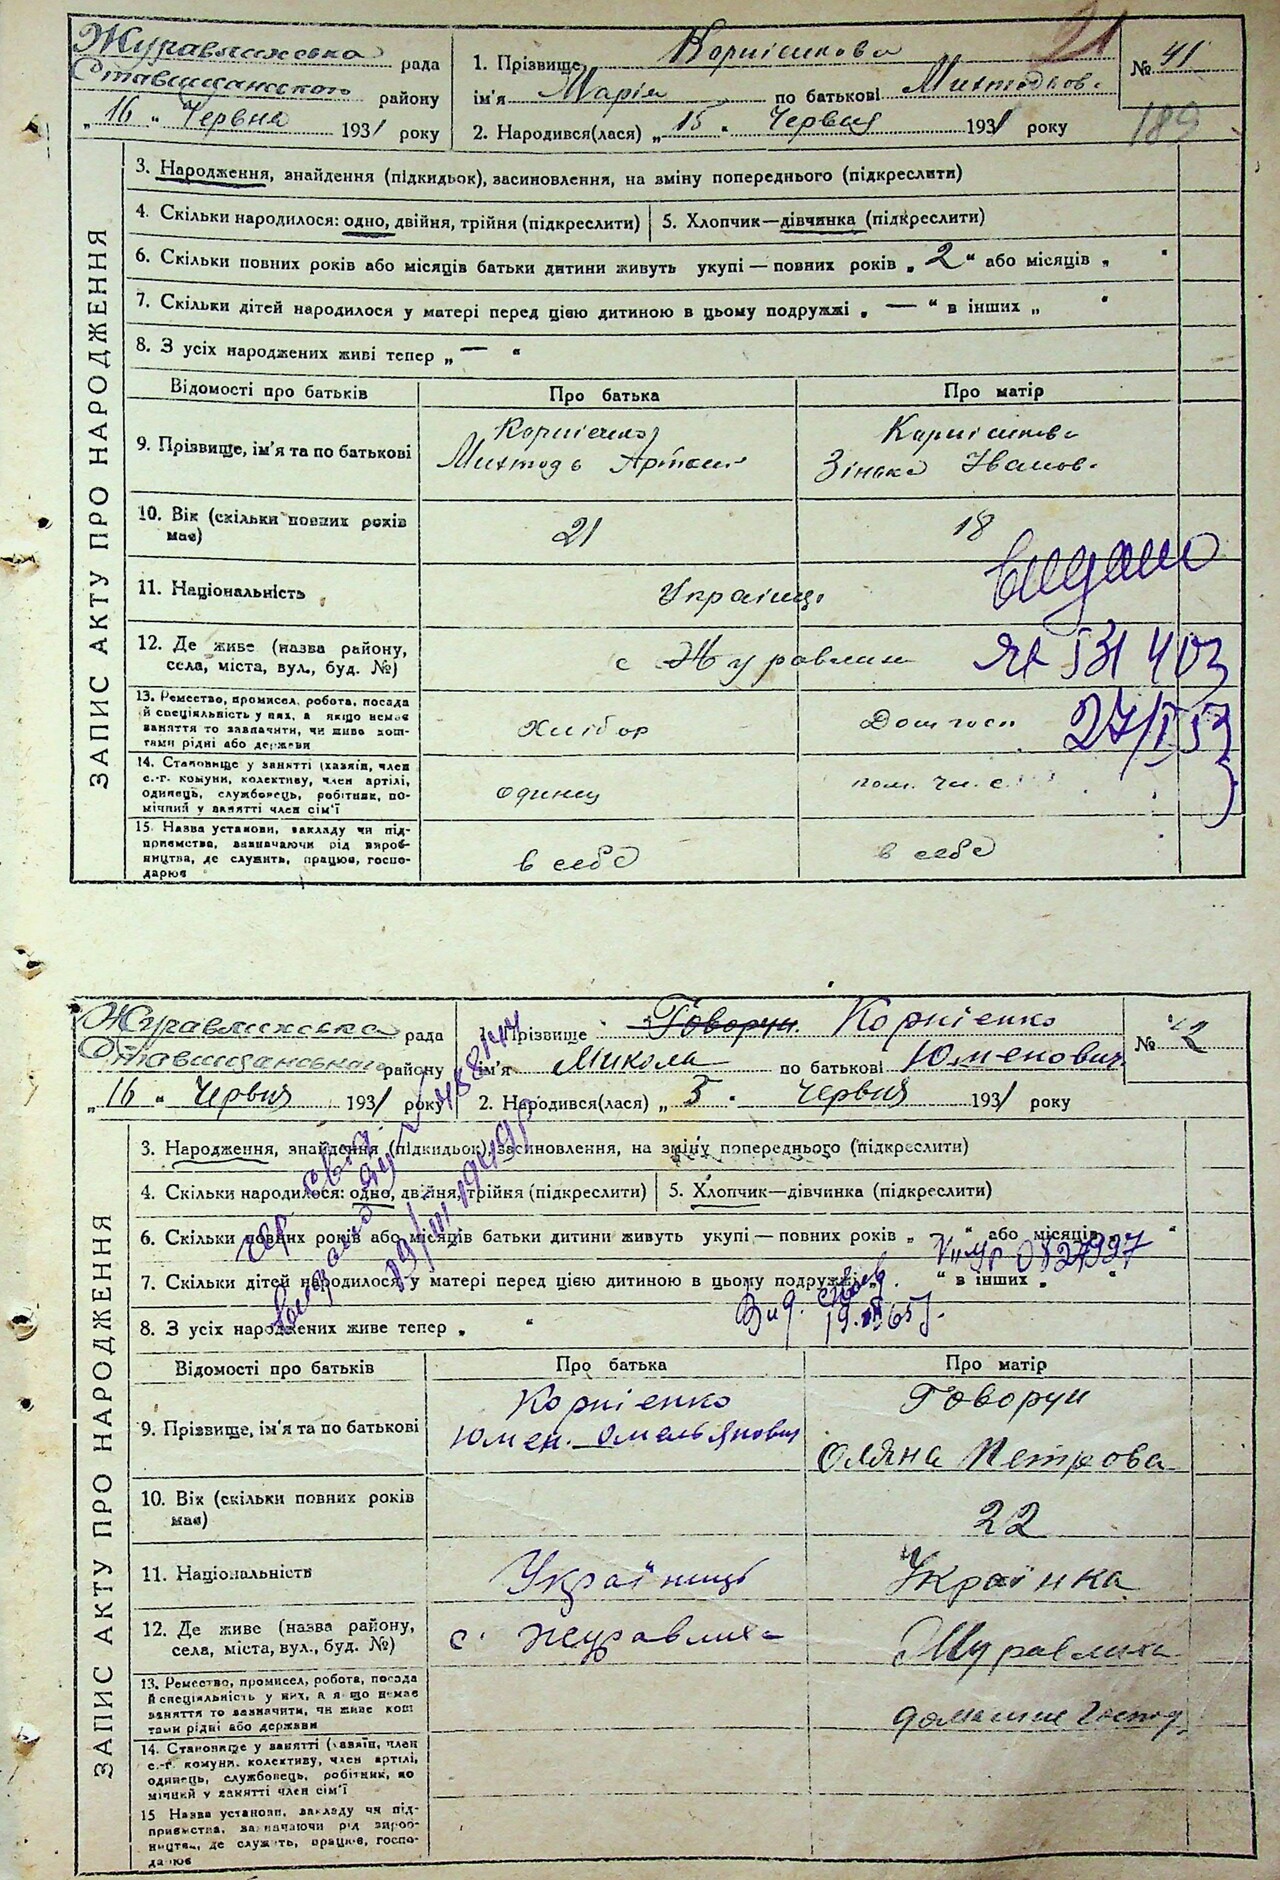 Журавлихська рада
Ставищанського району
„16" Червня 1931 року
1. Прізвище Корнієнкова
ім'я Марія по батькові Михтодьов.
2. Народився(лася) „15" Червня 1931 року
21
№ 41
189
ЗАПИС АКТУ ПРО НАРОДЖЕННЯ
3. Народження, знайдення (підкидьок), засиновлення, на зміну попереднього (підкреслити)
4. Скільки народилося: одно, двійня, трійня (підкреслити) 5. Хлопчик—дівчинка (підкреслити)
6. Скільки повних років або місяців батьки дитини живуть укупі — повних років „2" або місяців „ "
7. Скільки дітей народилося у матері перед цією дитиною в цьому подружжі „—" в інших „ "
8. З усіх народжених живі тепер „—"
Відомості про батьків Про батька Про матір
9. Прізвище, ім'я та по батькові
Корнієнко
Михтодь Артем
Корнієнкова
Зінька Іванов.
10. Вік (скільки повних років має)
21
18
11. Національність
Українці
видано
12. Де живе (назва району, села, міста, вул., буд. №)
с Журавлих
531403
27/I 53
13. Ремество, промисел, робота, посада й спеціяльність у них, а якщо немає заняття то зазначити, чи живе коштами рідні або держави
хлібор
Дом госп
14. Становище у занятті (хазяїн, член с.-г. комуни, колективу, член артілі, одинець, службовець, робітник, помічний у занятті член сім'ї
одинец
пом. чл. с.
15. Назва установи, закладу чи підприємства, зазначаючи рід виробництва, де служить, працює, господарює
в себе
в себе
Журавлихська рада
Ставищанського району
„16" Червня 1931 року
1. Прізвище Говорун Корнієнко
ім'я Микола по батькові Юменович
2. Народився(лася) „5" Червня 1931 року
№ 42
ЗАПИС АКТУ ПРО НАРОДЖЕННЯ
3. Народження, знайдення (підкидьок), засиновлення, на зміну попереднього (підкреслити)
4. Скільки народилося: одно, двійня, трійня (підкреслити) 5. Хлопчик—дівчинка (підкреслити)
6. Скільки повних років або місяців батьки дитини живуть укупі — повних років „ " або місяців „ "
7. Скільки дітей народилося у матері перед цією дитиною в цьому подружжі „ " в інших „ "
8. З усіх народжених живе тепер „ "
19/III 1949р
Відомості про батьків Про батька Про матір
9. Прізвище, ім'я та по батькові
Корнієнко
Юмен. Омельянович
Говорун
Оляна Петрова
10. Вік (скільки повних років має)
22
11. Національність
Українці
Українка
12. Де живе (назва району, села, міста, вул., буд. №)
с. Журавлиха
Журавлиха
13. Ремество, промисел, робота, посада й спеціяльність у них, а якщо немає заняття то зазначити, чи живе коштами рідні або держави
домашнє господ.
14. Становище у занятті (хазяїн, член с.-г. комуни, колективу, член артілі, одинець, службовець, робітник, помічний у занятті член сім'ї
15. Назва установи, закладу чи підприємства, зазначаючи рід виробництва, де служить, працює, господарює